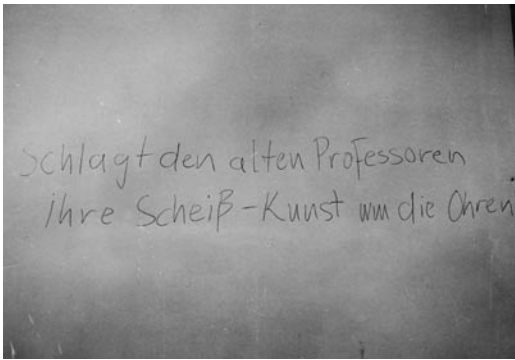 Schlagt den alten Professoren
ihre Scheiß-Kunst um die Ohren